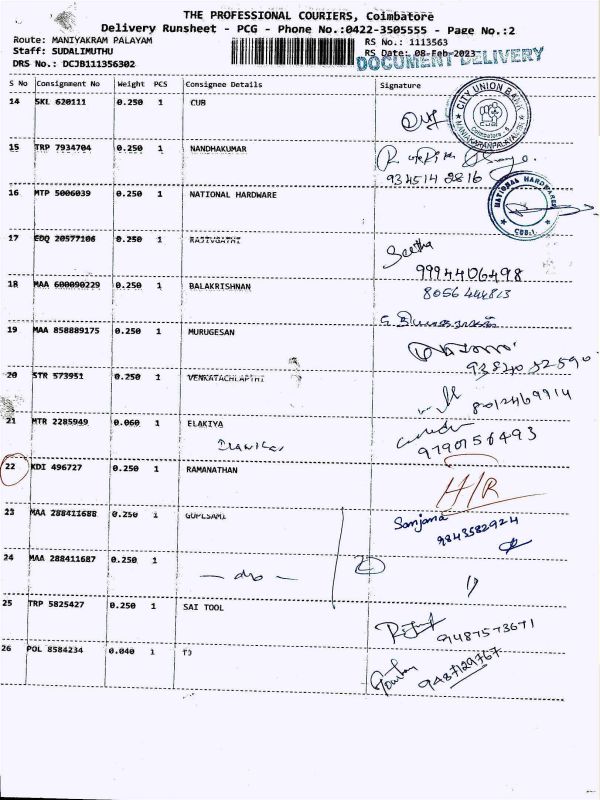 THE PROFESSIONAL COURIERS, Coimbatore
Delivery Runsheet - PCG - Phone No.:0422-3505555 - Page No.:2
Route: MANIYAKRAM PALAYAM
RS No.: 1113563
Staff: SUDALIMUTHU
RS Date: 08-Feb-2023
DRS No.: DCJB111356302
DOCUMENT DELIVERY
S No Consignment No Weight PCS Consignee Details Signature
14 SKL 620111 0.250 1 CUB
CITY UNION BANK
Coimbatore - 6
15 TRP 7934704 0.250 1 NANDHAKUMAR
934514 2816
16 MTP 5006039 0.250 1 NATIONAL HARDWARE
NATIONAL HARDWARES
CBE-1.
17 EDQ 20577106 0.250 1
Seetha
9994406498
18 MAA 600090229 0.250 1 BALAKRISHNAN
8056 444813
19 MAA 858889175 0.250 1 MURUGESAN
93840 32590
20 STR 573951 0.250 1 VENKATACHLAPTHI
8012469914
21 MTR 2285949 0.060 1 ELAKIYA
9790156493
22 KDI 496727 0.250 1 RAMANATHAN
H/R
23 MAA 288411688 0.250 1 GOPLSAMI
Sanjana
9843582924
24 MAA 288411687 0.250 1
— do —
25 TRP 5825427 0.250 1 SAI TOOL
9487573671
26 POL 8584234 0.040 1 TJ
Gowtham
9487129767